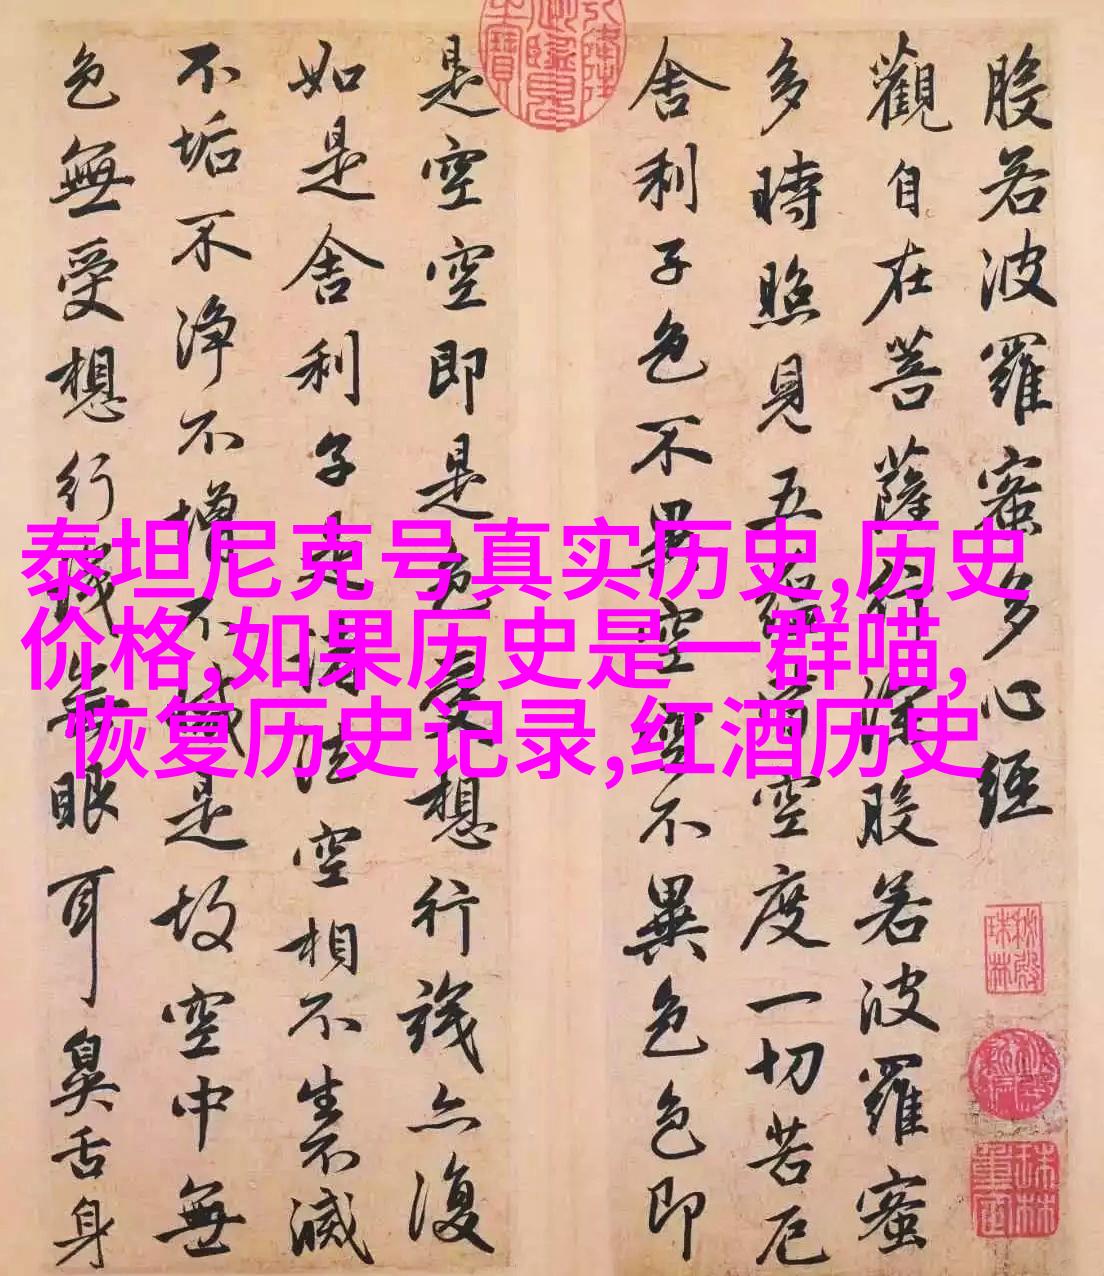 般若波羅蜜多心經
觀自在菩薩行深般若波羅蜜
多時照見五蘊皆空度一切苦厄
舍利子色不異空空不異色色即
是空空即是色受想行識亦復
如是舍利子是諸法空相不生不滅
不垢不淨不增不減是故空中無
色無受想行識無眼耳鼻舌身
秘殿珠林
珠林重定
泰坦尼克号真实历史,历史
价格,如果历史是一群喵,
恢复历史记录,红酒历史